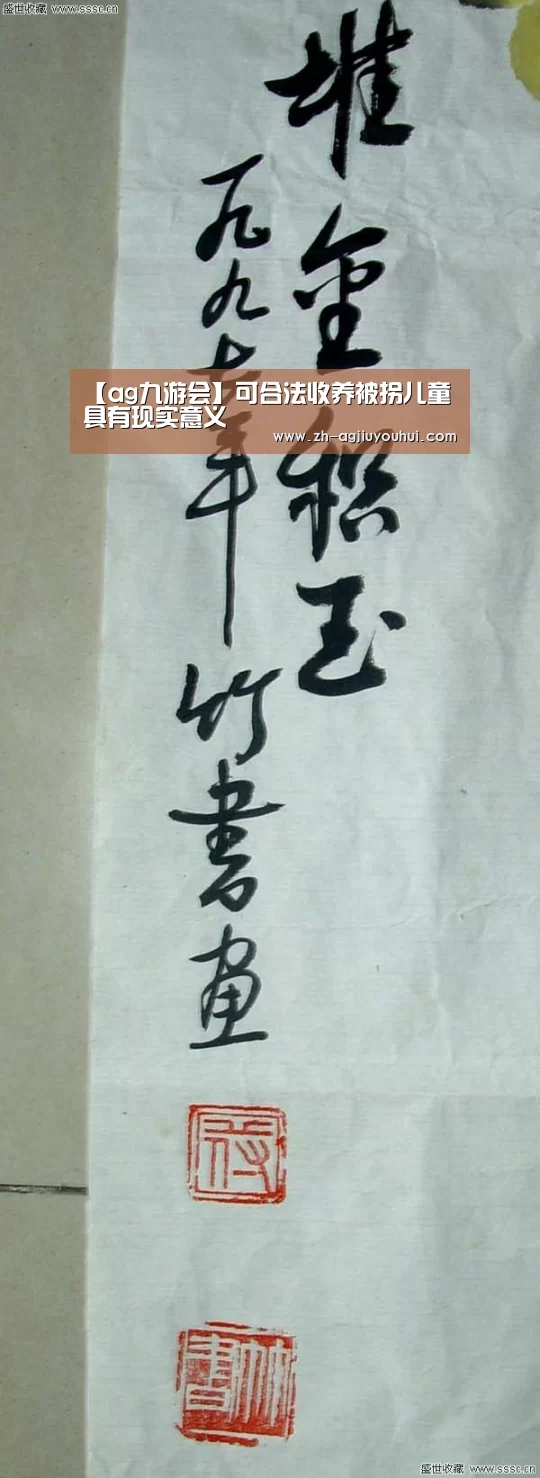 盛世收藏 www.sssc.cn
堆金積玉
一九九六年
竹書畫
【ag九游会】可合法收养被拐儿童
具有现实意义
www.zh-agjiuyouhui.com
竹書
盛世收藏 www.sssc.cn